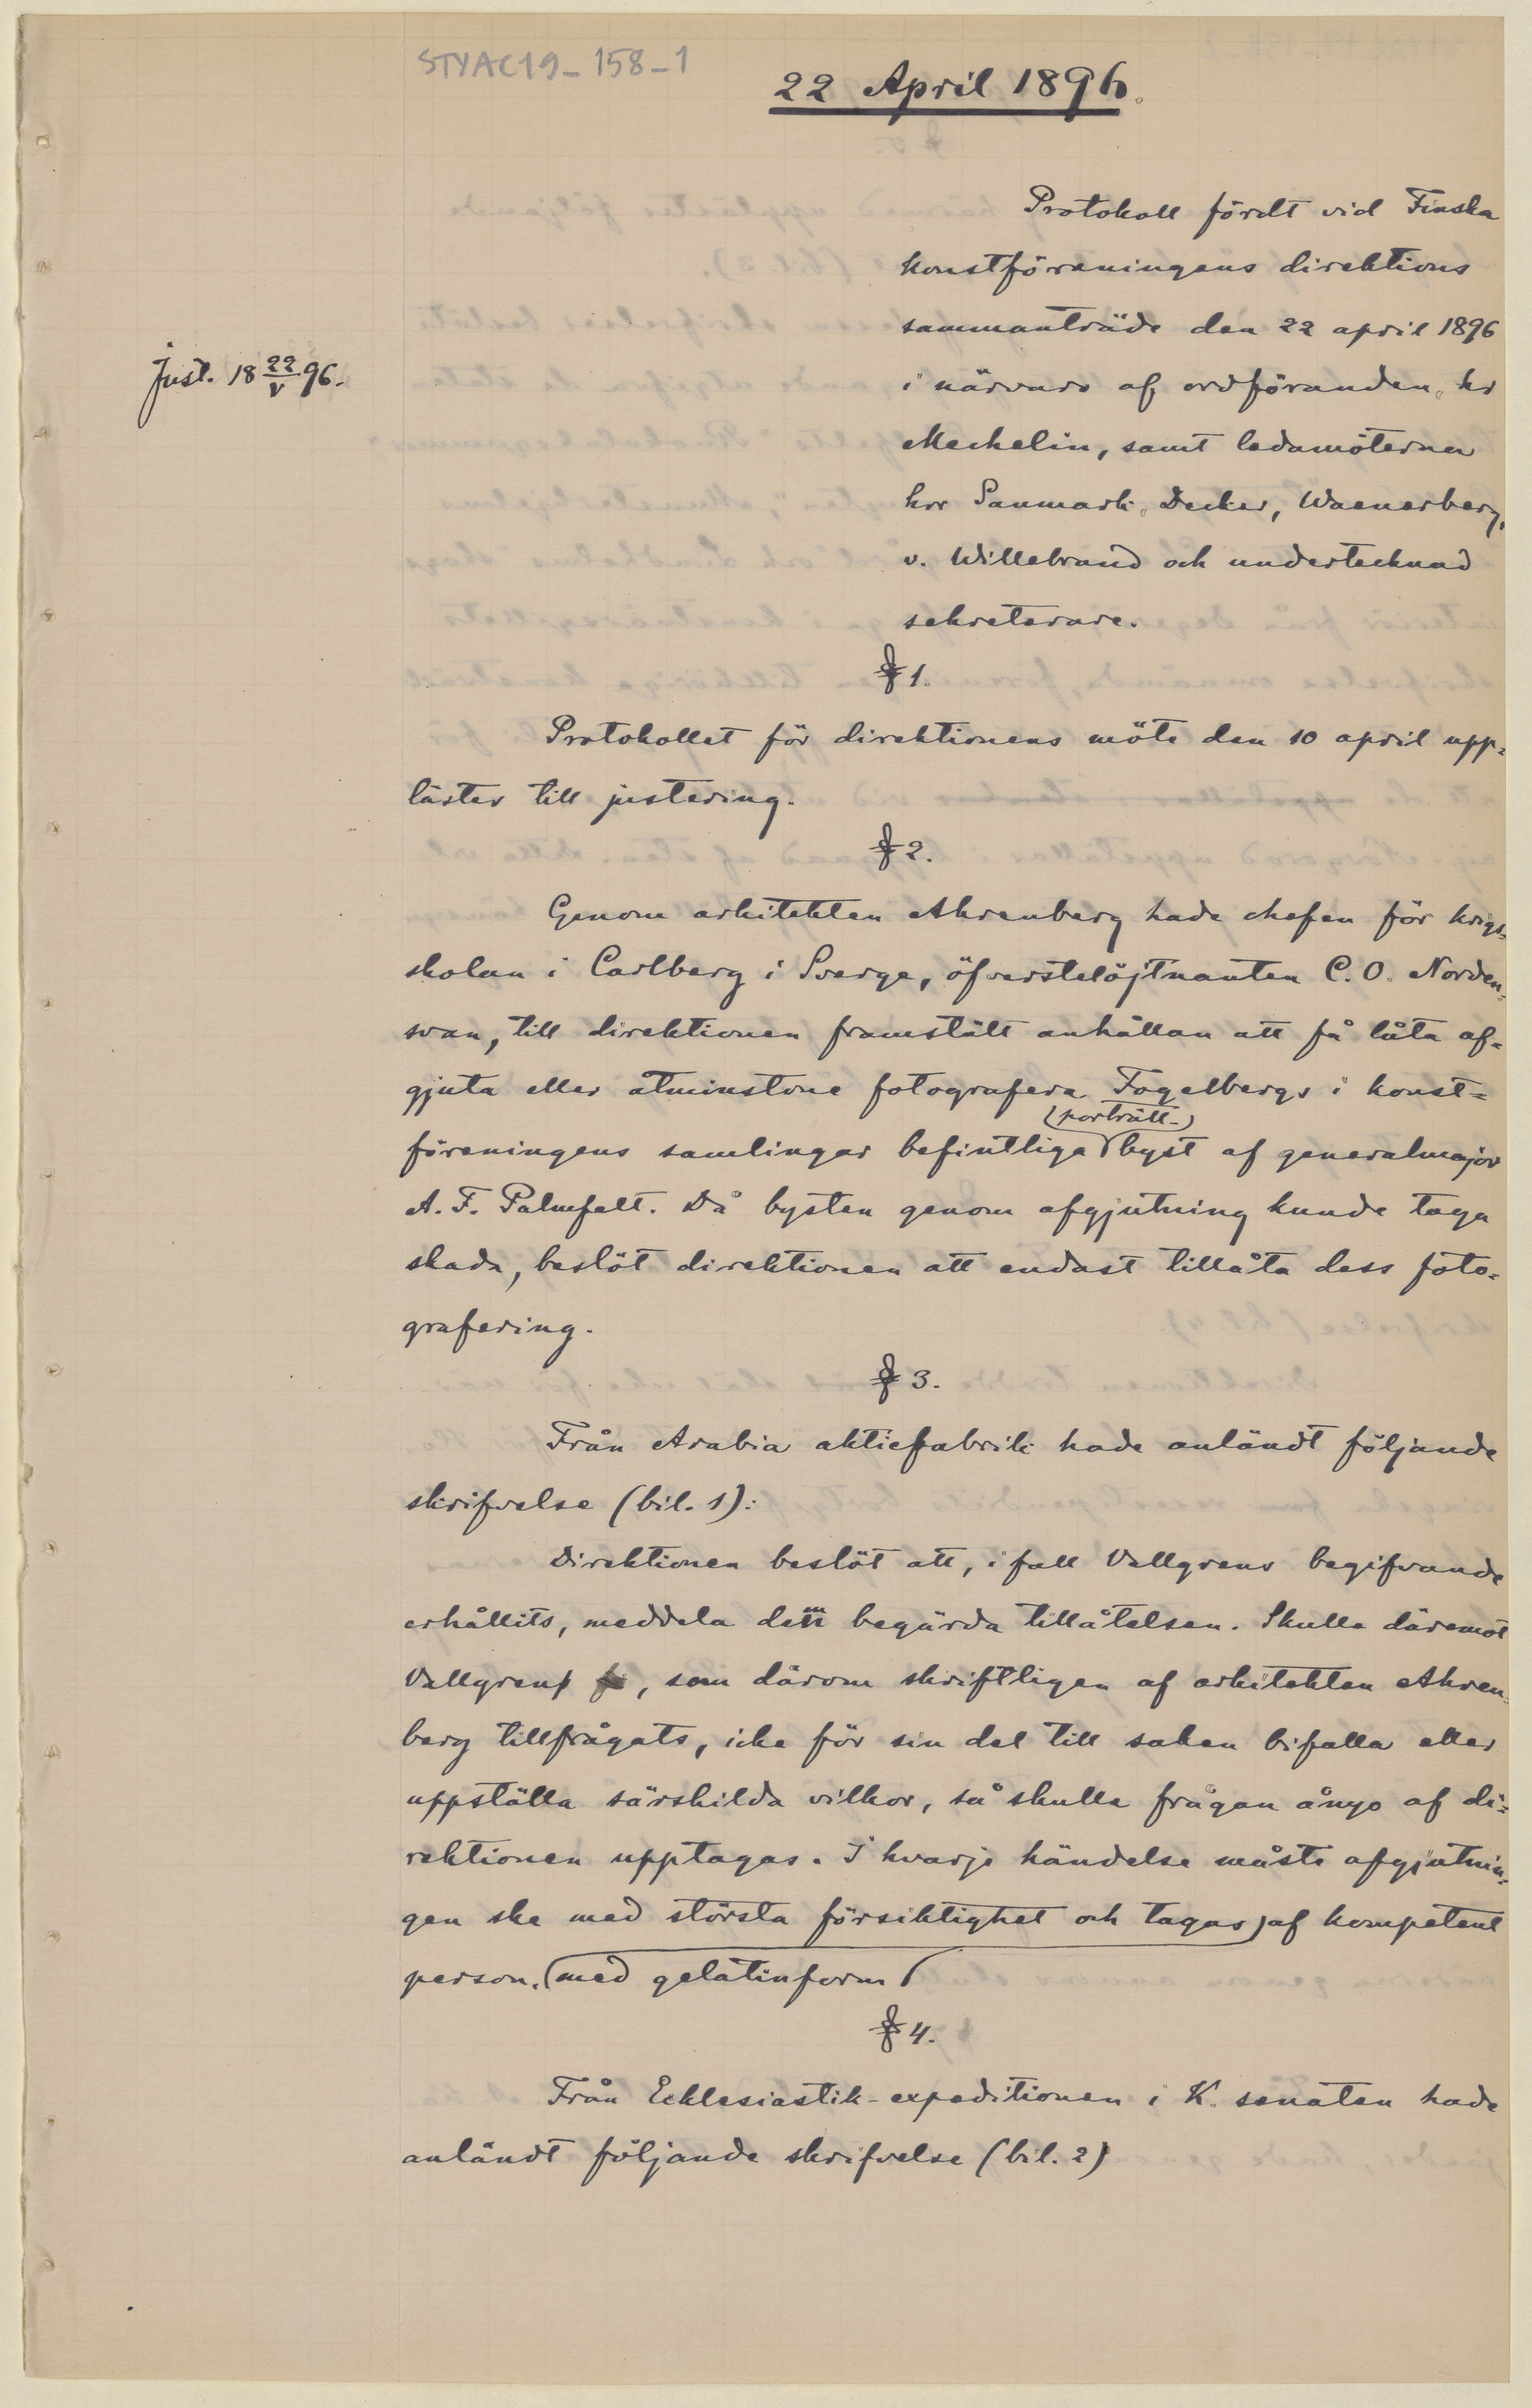 STYAC19-158-1
22 April 1896.
Protokoll fördt vid Finska
konstföreningens direktions
sammanträde den 22 april 1896
Just. 18 22/V 96.
i närvaro af ordföranden, hr
Mechelin, samt ledamöterna
hrr Sanmark, Decker, Waenerberg,
v. Willebrand och undertecknad
sekreterare.
§ 1.
Protokollet för direktionens möte den 10 april upp=
lästes till justering.
§ 2.
Genom arkitekten Ahrenberg hade chefen för krigs=
skolan i Carlberg i Sverge, öfverstelöjtnanten C. O. Norden=
svan, till direktionen framstält anhållan att få låta af=
gjuta eller åtminstone fotografera Fogelbergs i konst=
(porträtt-)
föreningens samlingar befintliga byst af generalmajor
A. F. Palmfelt. Då bysten genom afgjutning kunde taga
skada, beslöt direktionen att endast tillåta dess foto=
grafering.
§ 3.
Från Arabia aktiefabrik hade anländt följande
skrifvelse (bil. 1):
Direktionen beslöt att, i fall Vallgrens begifvande
erhållits, meddela den begärda tillåtelsen. Skulle däremot
Vallgren, som därom skriftligen af arkitekten Ahren=
berg tillfrågats, icke för sin del till saken bifalla eller
uppställa särskilda vilkor, så skulle frågan ånyo af di=
rektionen upptagas. I hvarje händelse måste afgjutnin=
gen ske med största försiktighet och tagas af kompetent
person. (med gelatinform
§ 4.
Från Ecklesiastik-expeditionen i K. senaten hade
anländt följande skrifvelse (bil. 2)